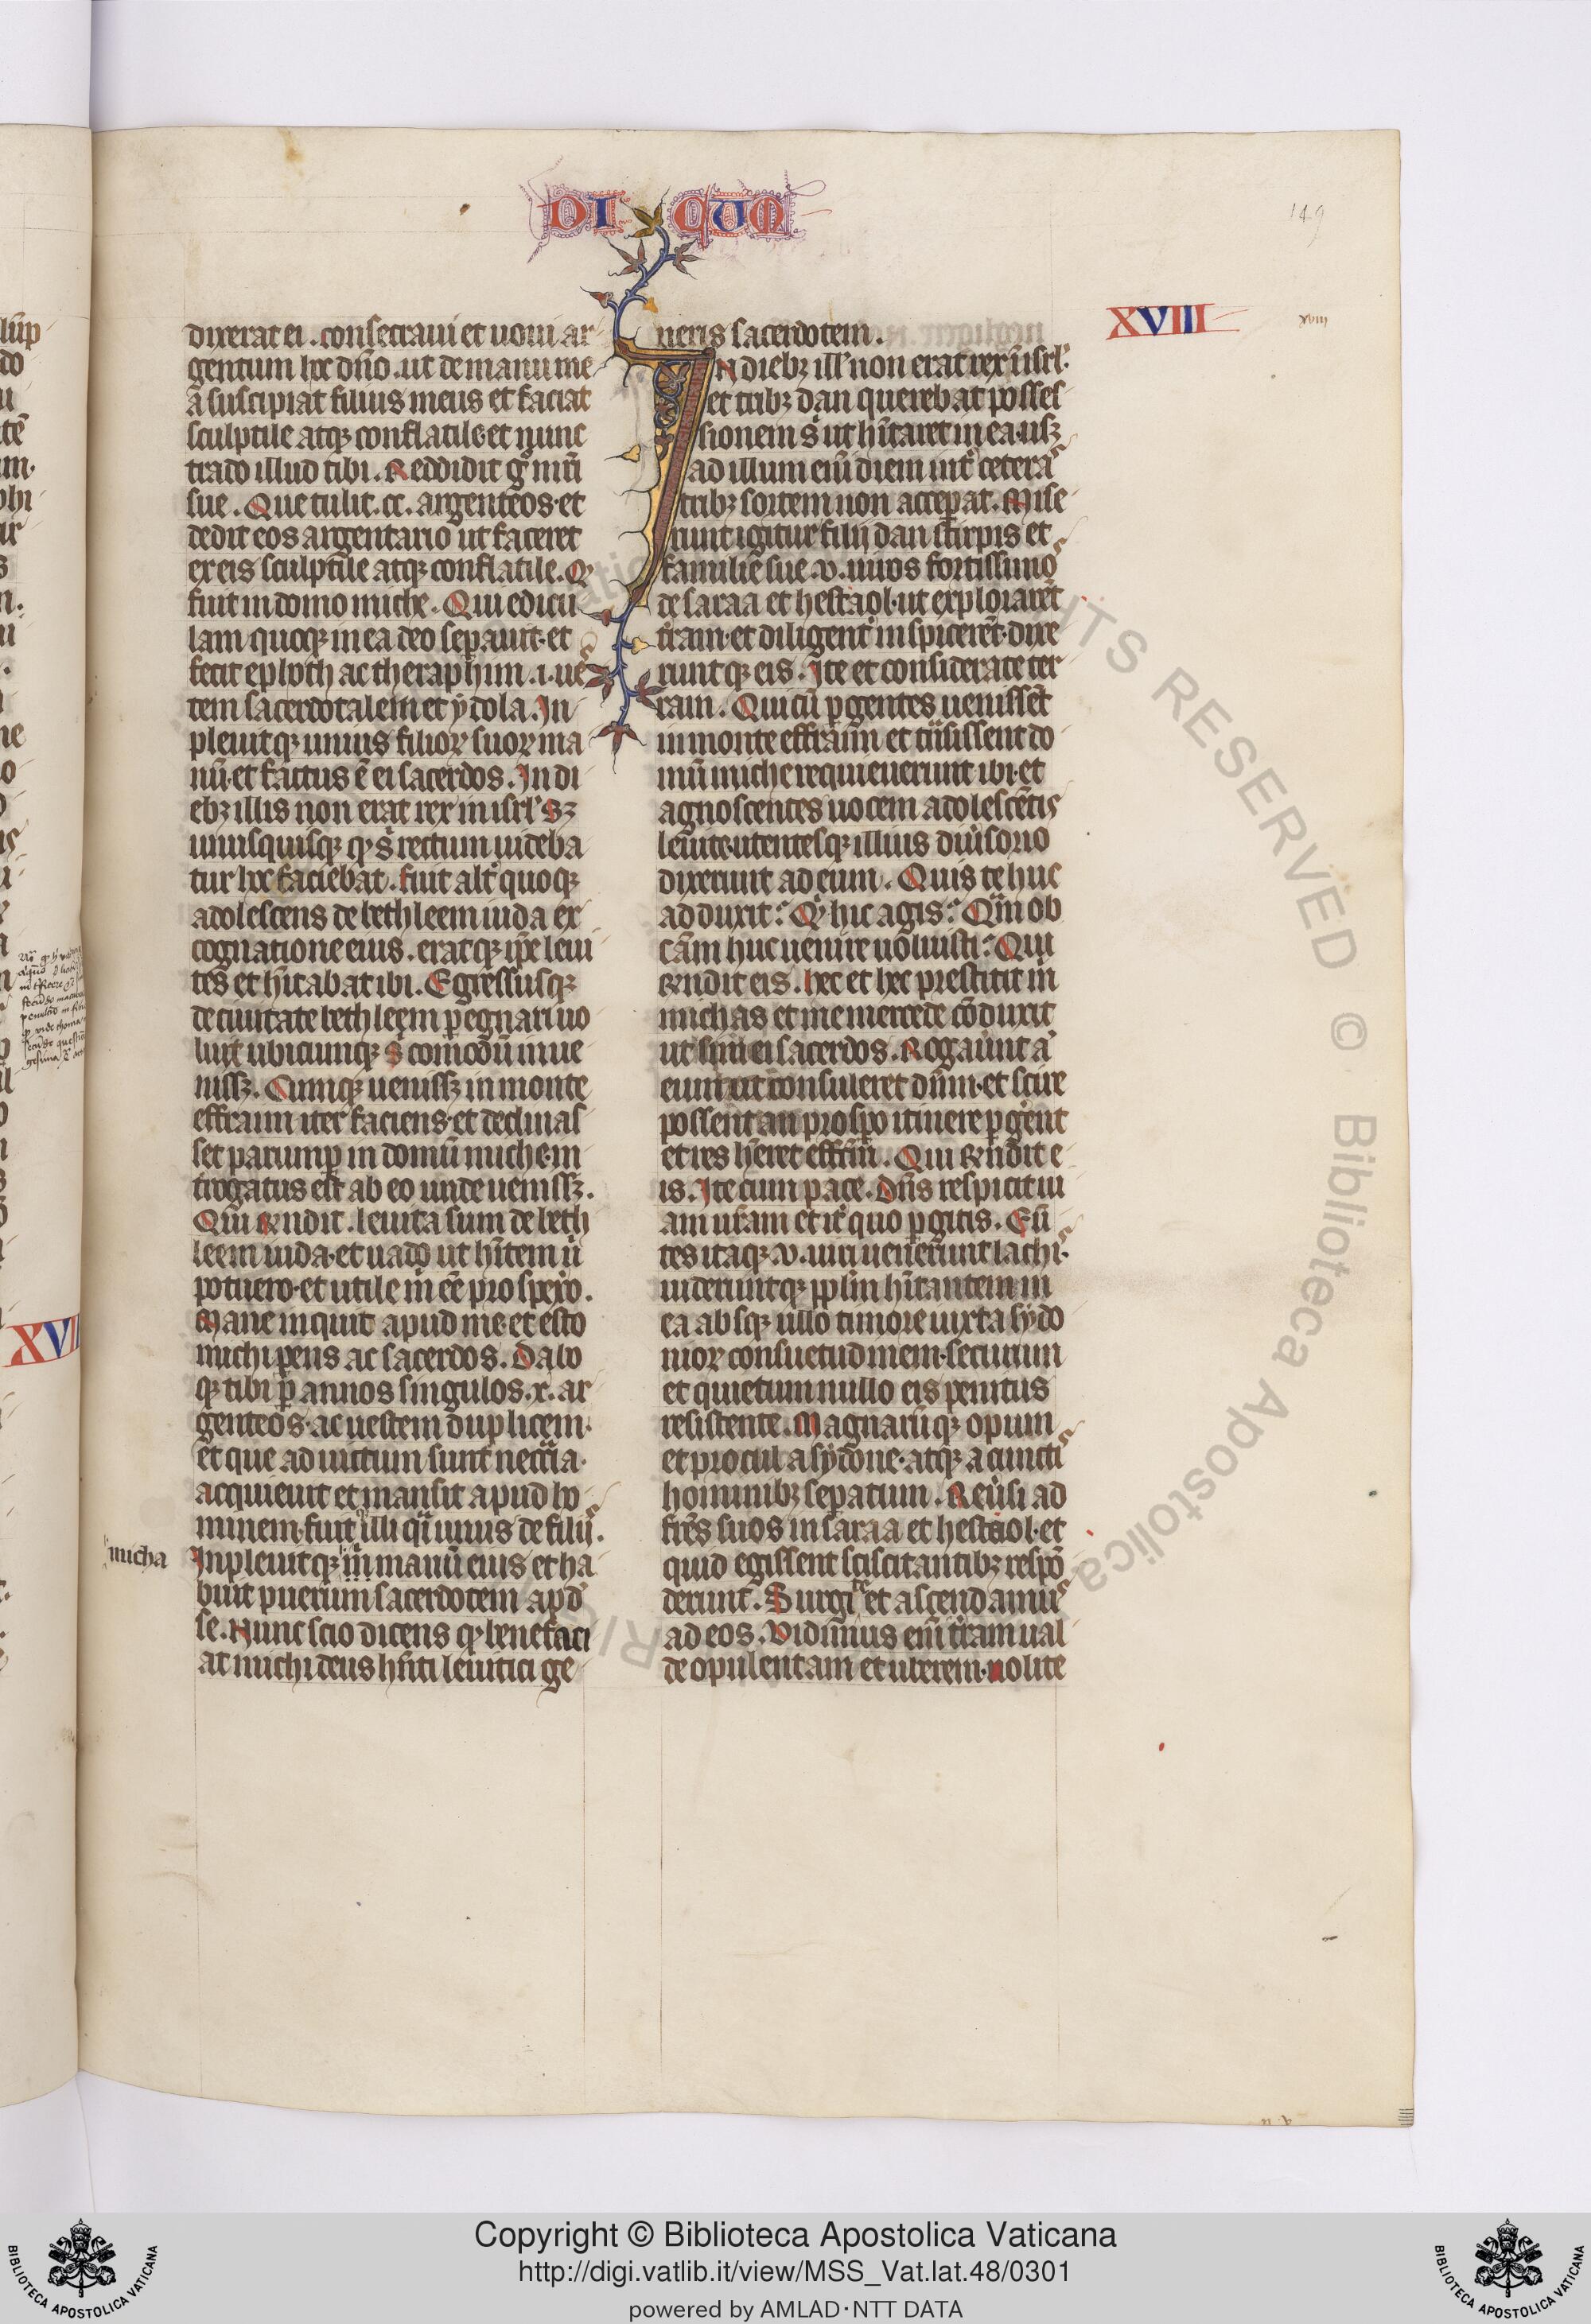 DI CUM
149
dixerat ei . consecraui et uoui ar
gentum hoc dño . ut de manu me
a suscipiat filius meus et faciat
sculptile atqꝫ conflatile · et nunc
trado illud tibi . Reddidit gͥ mr̄i
sue . Que tulit . cc . argenteos · et
dedit eos argentario ut faceret
ex eis sculptile atqꝫ conflatile . Qͩ
fuit in domo miche . Qui edicu
lam quoqꝫ in ea deo sepauit · et
fecit ephoth ac theraphim . i . ues
tem sacerdotalem et ydola . In
pleuitqꝫ unius filioꝝ suoꝝ ma
nū · et factus ē ei sacerdos . In di
ebꝫ illis non erat rex in isrl' sꝫ
unusquisqꝫ qͩ sͥ rectum uideba
tur hoc faciebat . fuit alt' quoqꝫ
adolescens de bethleem iuda ex
cognatione eius . eratqꝫ ip̄e leui
tes et hītabat ibi . Egressusqꝫ
de ciuitate bethleem ꝑegnari uo
luit ubicunqꝫ sͥ comodū inue
nissꝫ . Cumqꝫ uenissꝫ in monte
effraim iter faciens · et declinas
set parumꝑ in domū miche · in
trogatus est ab eo unde uenissꝫ .
Qui rn̄dit . leuita sum de beth
leem iuda · et uado ut hītem uͥ
potuero · et utile mͥ ēe prospexo .
Mane inquit apud me · et esto
michi pens ac sacerdos . Dabo
qꝫ tibi ꝑ annos singulos . x . ar
genteos · ac uestem duplicem ·
et que ad uictum sunt necc̄ia ·
acquieuit et mansit apud ho
minem · fuitqꝫ illi qͣi unus de filijs .
micha
Inpleuitqꝫ mͥ manū eius et ha
buit puerum sacerdotem apd'
se . Nunc scio dicens qͩ benefaci
at michi deus hn̄ti leuitici ge
XVIII
xviii
neris sacerdotem .
IN diebꝫ ill' non erat rex ī isrl' ·
et tribꝫ dan querebat posses
sionem sͥ ut hītaret in ea · usqꝫ
ad illum eniͫ diem int' ceteras
tribꝫ sortem non acceperat . Mise
runt igitur filij dan stirpis et
familie sue . v . uiros fortissimos
de saraa et hestaol · ut explorarēt
t'ram · et diligent' inspicerēt · dixe
runtqꝫ eis . Ite et considerate ter
ram . Qui cū ꝑgentes uenissēt
in monte effraim et intͣsissent do
mū miche requieuerunt ibi · et
agnoscentes uocem adolescētis
leuite · utentesqꝫ illius diuͥsorio
dixerunt ad eum . Quis te huc
adduxit ? Qͥ hic agis ? Qͣm ob
cām huc uenire uoluisti ? Qui
rn̄dit eis . hec et hec prestitit mͥ
michas et me mercede cōduxit
ut sim ei sacerdos . Rogaūnt aͫ
eum ut consuleret dn̄m · et scire
possent an prospo itinere ꝑgent
et res hēret effectū . Qui rn̄dit e
is . Ite cum pace . Dn̄s respicit ui
am ur̄am et it' quo ꝑgitis . Eū
tes itaqꝫ . v . uiri uenerunt lachis ·
uideruntqꝫ pp̄lm hītantem in
ea absqꝫ ullo timore iuxta sydo
nioꝝ consuetudinem · securum
et quietum nullo eis penitus
resistente . Magnarūqꝫ opum
et procul a sydone · atqꝫ a cunctis
hominibꝫ sepatum . Reuͥsi ad
fr̄es suos in saraa et hestaol · et
quid egissent sciscitantibꝫ respō
derunt . Surgite et ascendamus
ad eos . Vidimus eniͫ t'ram ual
de opulentam et uberem · nolite
Copyright © Biblioteca Apostolica Vaticana
http://digi.vatlib.it/view/MSS_Vat.lat.48/0301
powered by AMLAD·NTT DATA